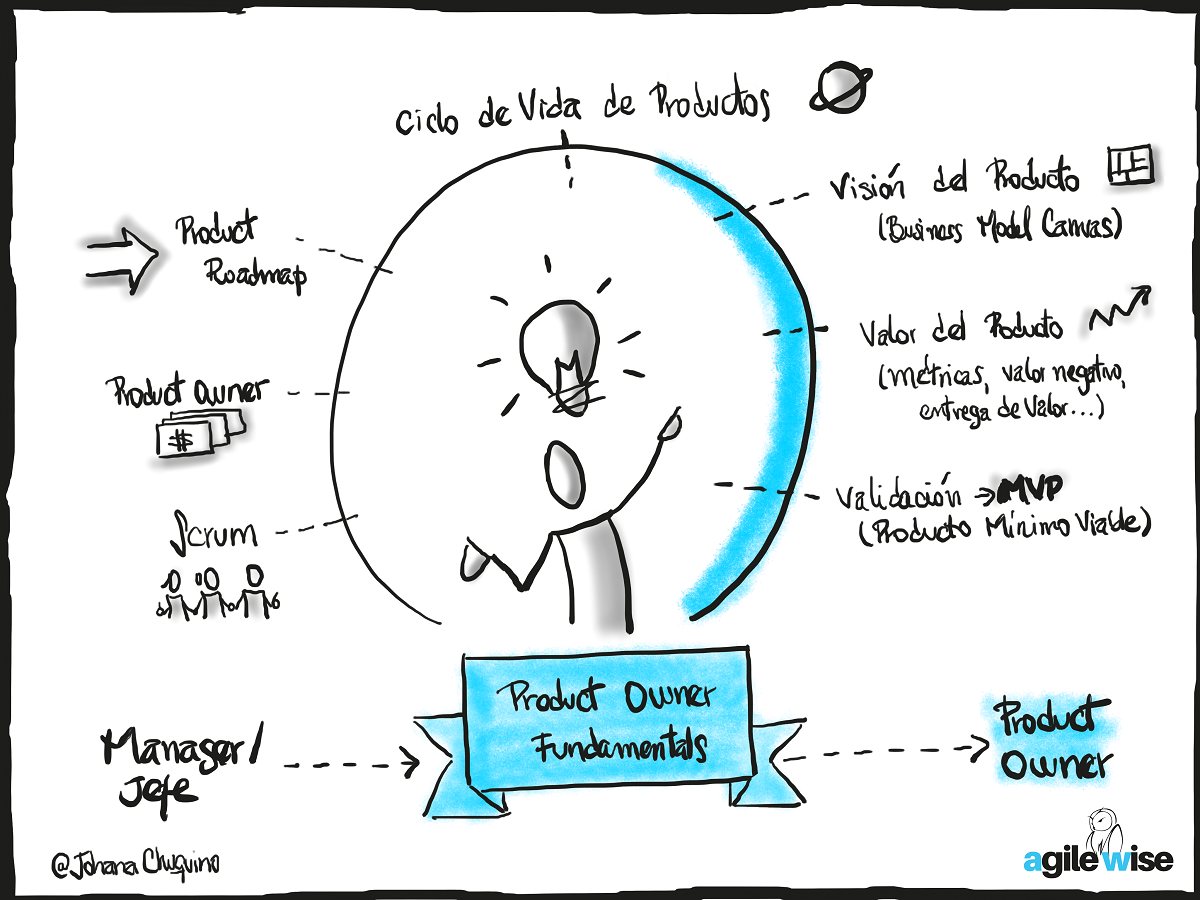 Ciclo de Vida de Productos
Product
Roadmap
Product Owner
$
Scrum
Visión del Producto
(Business Model Canvas)
Valor del Producto
(Métricas, valor negativo,
entrega de valor...)
Validación → MVP
(Producto Mínimo Viable)
Manager/
Jefe
Product Owner
Fundamentals
Product
Owner
@Johana Chuquino
agile wise